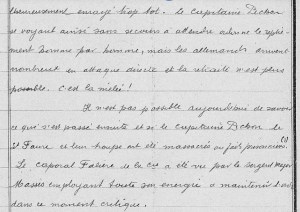 heureusement enrayé trop tot. Le Capitaine Debon
se voyant ainsi sans secours à attendre ordonne le repli-
ment homme par homme, mais les allemands arrivent
nombreux en attaque directe et la retraite n'est plus
possible. C'est la mêlée!
Il n'est pas possible aujourd'hui de savoir
ce qui s'est passé ensuite et si le Capitaine Debon le
Lt Faure et leur troupe ont été massacrés ou faits prisonniers (1)
Le caporal Faivre de la Cie a été vu par le sergent major
Massis employant toute son énergie à maintenir
dans ce moment critique.